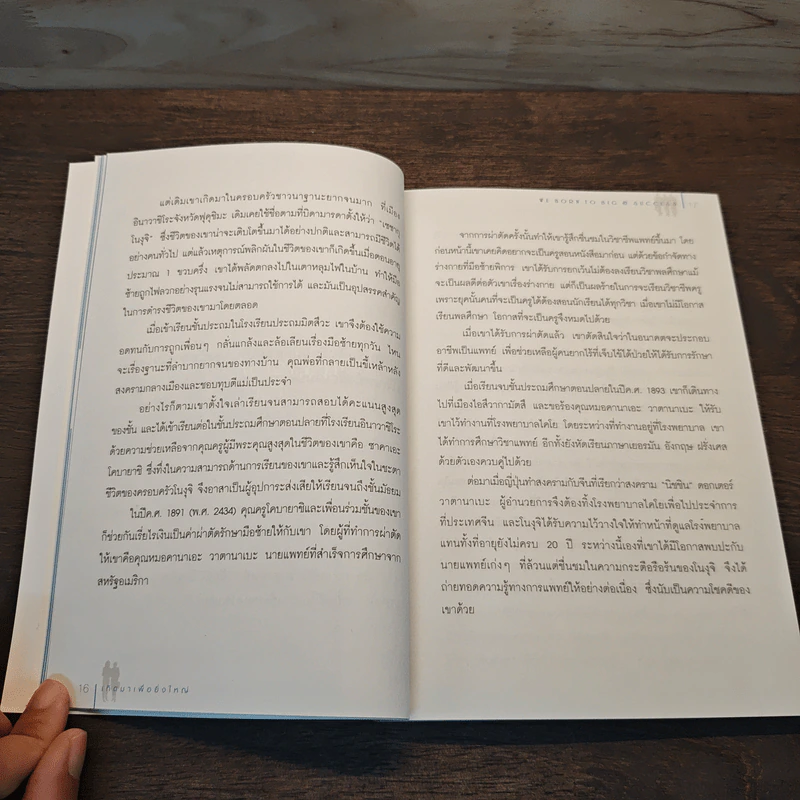 แต่เดิมเขาเกิดมาในครอบครัวชาวนาฐานะยากจนมาก ที่เมือง
อินาวาชิโระจังหวัดฟุคุชิมะ เดิมเคยใช้ชื่อตามที่บิดามารดาตั้งให้ว่า
โนงุจิ" ซึ่งชีวิตของเขาน่าจะเติบโตขึ้นมาได้อย่างปกติและสามารถมีชีวิตได้
อย่างคนทั่วไป แต่แล้วเหตุการณ์พลิกผันในชีวิตของเขาก็เกิดขึ้นเมื่อตอนอายุ
ประมาณ 1 ขวบครึ่ง เขาได้พลัดตกลงไปในเตาหลุมไฟในบ้าน ทำให้มือ
ซ้ายถูกไฟลวกอย่างรุนแรงจนไม่สามารถใช้การได้ และมันเป็นอุปสรรคสำคัญ
ในการดำรงชีวิตของเขามาโดยตลอด
เมื่อเข้าเรียนชั้นประถมในโรงเรียนประถมมิตสึวะ เขาจึงต้องใช้ความ
อดทนกับการถูกเพื่อนๆ กลั่นแกล้งและล้อเลียนเรื่องมือซ้ายทุกวัน ไหน
จะเรื่องฐานะที่ลำบากยากจนของทางบ้าน คุณพ่อที่กลายเป็นขี้เหล้าหลัง
สงครามกลางเมืองและชอบทุบตีแม่เป็นประจำ
อย่างไรก็ตามเขาตั้งใจเล่าเรียนจนสามารถสอบได้คะแนนสูงสุด
ของชั้น และได้เข้าเรียนต่อในชั้นประถมศึกษาตอนปลายที่โรงเรียนอินาวาชิโระ
ด้วยความช่วยเหลือจากคุณครูผู้มีพระคุณสูงสุดในชีวิตของเขาคือ ซาคาเอะ
โคบายาชิ ซึ่งทึ่งในความสามารถด้านการเรียนของเขาและรู้สึกเห็นใจในชะตา
ชีวิตของครอบครัวโนงุจิ จึงอาสาเป็นผู้อุปการะส่งเสียให้เรียนจนถึงชั้นมัธยม
ในปีค.ศ. 1891 (พ.ศ. 2434) คุณครูโคบายาชิและเพื่อนร่วมชั้นของเขา
ก็ช่วยกันเรี่ยไรเงินเป็นค่าผ่าตัดรักษามือซ้ายให้กับเขา โดยผู้ที่ทำการผ่าตัด
ให้เขาคือคุณหมอคานาเอะ วาตานาเบะ นายแพทย์ที่สำเร็จการศึกษาจาก
สหรัฐอเมริกา
16 เกิดมาเพื่อยิ่งใหญ่
จากการผ่าตัดครั้งนั้นทำให้เขารู้สึกชื่นชมในวิชาชีพแพทย์ขึ้นมา โดย
ก่อนหน้านี้เขาเคยคิดอยากจะเป็นครูสอนหนังสือมาก่อน แต่ด้วยข้อกำจัดทาง
ร่างกายที่มือซ้ายพิการ เขาได้รับการยกเว้นไม่ต้องลงเรียนวิชาพลศึกษาแม้
จะเป็นผลดีต่อตัวเขาเรื่องร่างกาย แต่ก็เป็นผลร้ายในการจะเรียนวิชาชีพครู
เพราะยุคนั้นคนที่จะเป็นครูได้ต้องสอนนักเรียนได้ทุกวิชา เมื่อเขาไม่มีโอกาส
เรียนพลศึกษา โอกาสที่จะเป็นครูจึงหมดไปด้วย
เมื่อเขาได้รับการผ่าตัดแล้ว เขาตัดสินใจว่าในอนาคตจะประกอบ
อาชีพเป็นแพทย์ เพื่อช่วยเหลือผู้คนยากไร้ที่เจ็บไข้ได้ป่วยให้ได้รับการรักษา
ที่ดีและพัฒนาขึ้น
เมื่อเรียนจบชั้นประถมศึกษาตอนปลายในปีค.ศ. 1893 เขาก็เดินทาง
ไปที่เมืองไอสึวากามัตสึ และขอร้องคุณหมอคานาเอะ วาตานาเบะ ให้รับ
เขาไว้ทำงานที่โรงพยาบาลไคโย โดยระหว่างที่ทำงานอยู่ที่โรงพยาบาล เขา
ได้ทำการศึกษาวิชาแพทย์ อีกทั้งยังหัดเรียนภาษาเยอรมัน อังกฤษ ฝรั่งเศส
ด้วยตัวเองควบคู่ไปด้วย
ต่อมาเมื่อญี่ปุ่นทำสงครามกับจีนที่เรียกว่าสงคราม "นิชชิน" ดอกเตอร์
วาตานาเบะ ผู้อำนวยการจึงต้องทิ้งโรงพยาบาลไคโยเพื่อไปประจำการ
ที่ประเทศจีน และโนงุจิได้รับความไว้วางใจให้ทำหน้าที่ดูแลโรงพยาบาล
แทนทั้งที่อายุยังไม่ครบ 20 ปี ระหว่างนี้เองที่เขาได้มีโอกาสพบปะกับ
นายแพทย์เก่งๆ ที่ล้วนแต่ชื่นชมในความกระตือรือร้นของโนงุจิ จึงได้
ถ่ายทอดความรู้ทางการแพทย์ให้อย่างต่อเนื่อง ซึ่งนับเป็นความโชคดีของ
เขาด้วย